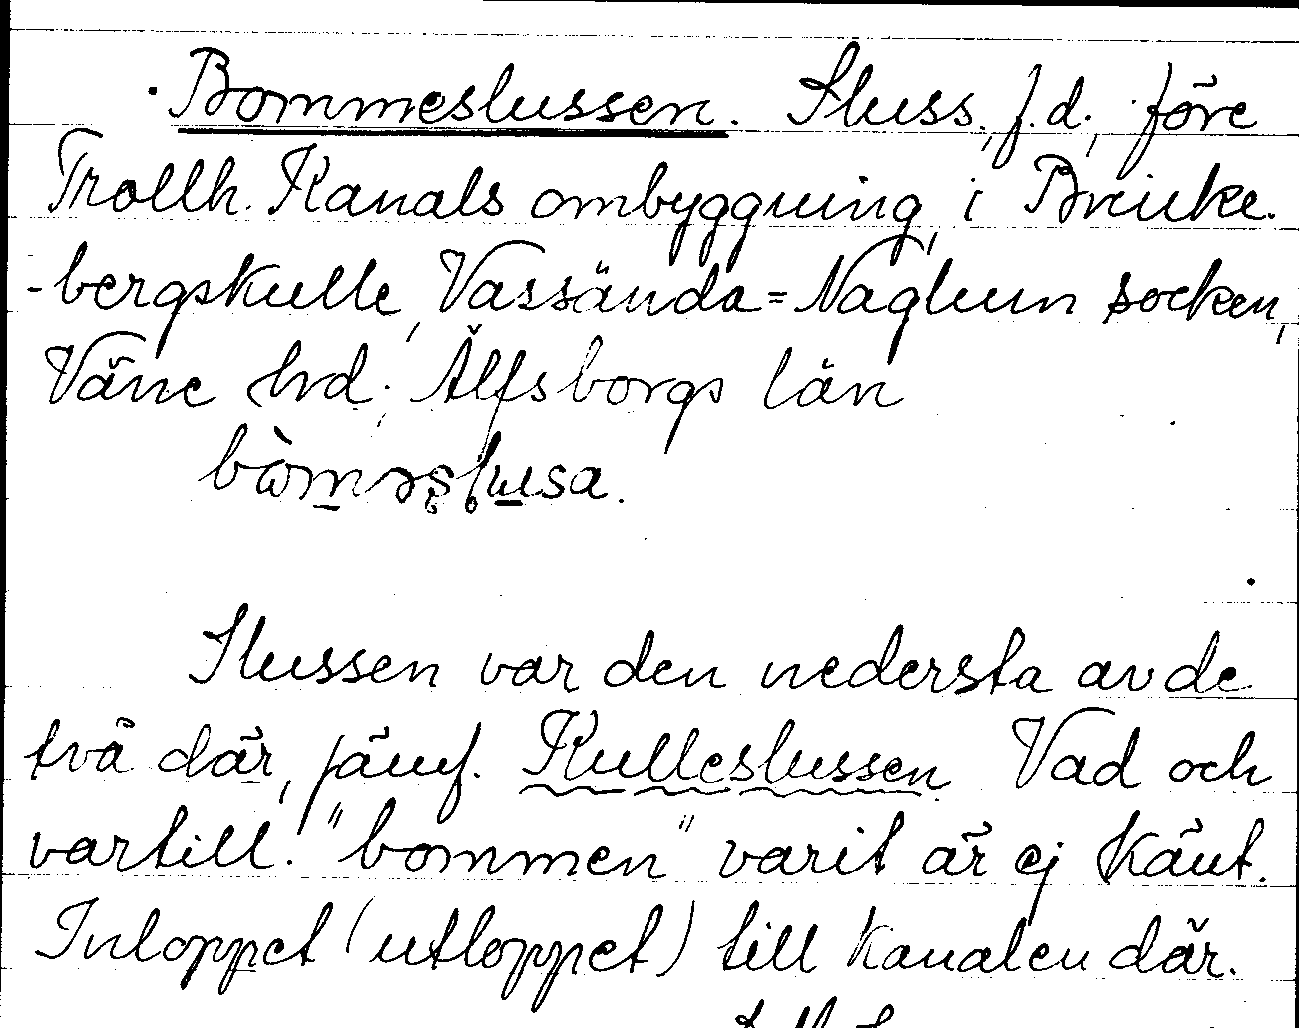 Bommeslussen. Sluss, f.d., före
Trollh. Kanals ombyggning, i Brinke-
-bergskulle, Vassända=Naglum socken,
Väne hrd, Älfsborgs län
Slussen var den nedersta av de
två där, jämf. Kulleslussen Vad och
vartill "bommen" varit är ej känt.
Inloppet (utloppet) till kanalen där.